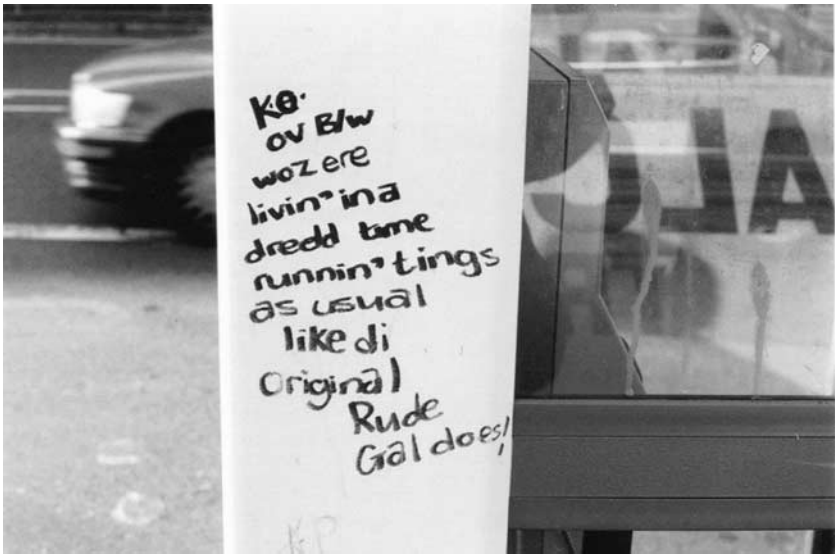 K.O.
OV B/W
woz ere
livin' in a
dredd time
runnin' tings
as usual
like di
Original
Rude
Gal does!